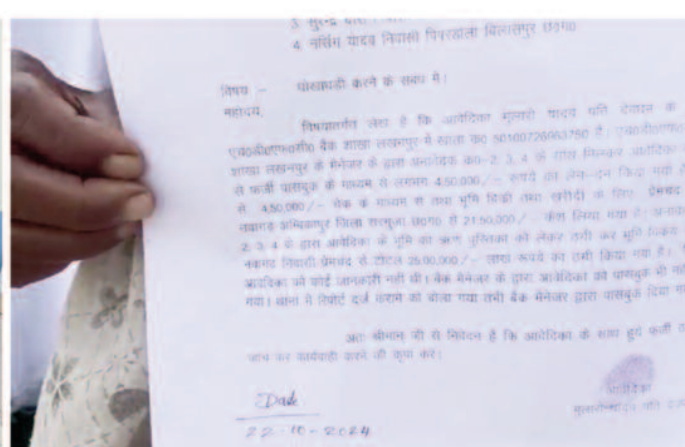 3. सुरेन्द्र
4. नर्सिंग यादव निवासी पिपरडोली बिलासपुर छ0ग0
विषय – धोखाधड़ी करने के संबंध में।
महोदय,
विषयान्तर्गत लेख है कि आवेदिका मुलारो यादव पति देवदन के
एच0डी0एफ0सी0 बैंक शाखा लखनपुर में खाता क0 50100726963750 है। एच0डी0एफ0
शाखा लखनपुर के मैनेजर के द्वारा अनावेदक क0- 2, 3, 4 के साथ मिलकर आवेदिका
से फर्जी पासबुक के माध्यम से लगभग 4,50,000/– रूपये का लेन-देन किया गया है
से 4,50,000/– चेक के माध्यम से तथा भूमि बिक्री तथा खरीदी के लिए प्रेमचंद
नवागढ़ अम्बिकापुर जिला सरगुजा छ0ग0 से 21,50,000/– कैश लिया गया है। अनावे
2, 3, 4 के द्वारा आवेदिका के भूमि का ऋण पुस्तिका को लेकर ठगी कर भूमि विक्रय
नवागढ़ निवासी प्रेमचंद से टोटल 26,00,000/– लाख रूपये का ठगी किया गया है।
आवेदिका को कोई जानकारी नहीं थी। बैंक मैनेजर के द्वारा आवेदिका को पासबुक भी नहीं
गया। थाना में रिपोर्ट दर्ज कराने को बोला गया तभी बैंक मैनेजर द्वारा पासबुक दिया गया
अतः श्रीमान जी से निवेदन है कि आवेदिका के साथ हुये फर्जी
जांच कर कार्यवाही करने की कृपा करें।
Date
22-10-2024
आवेदिका
पति